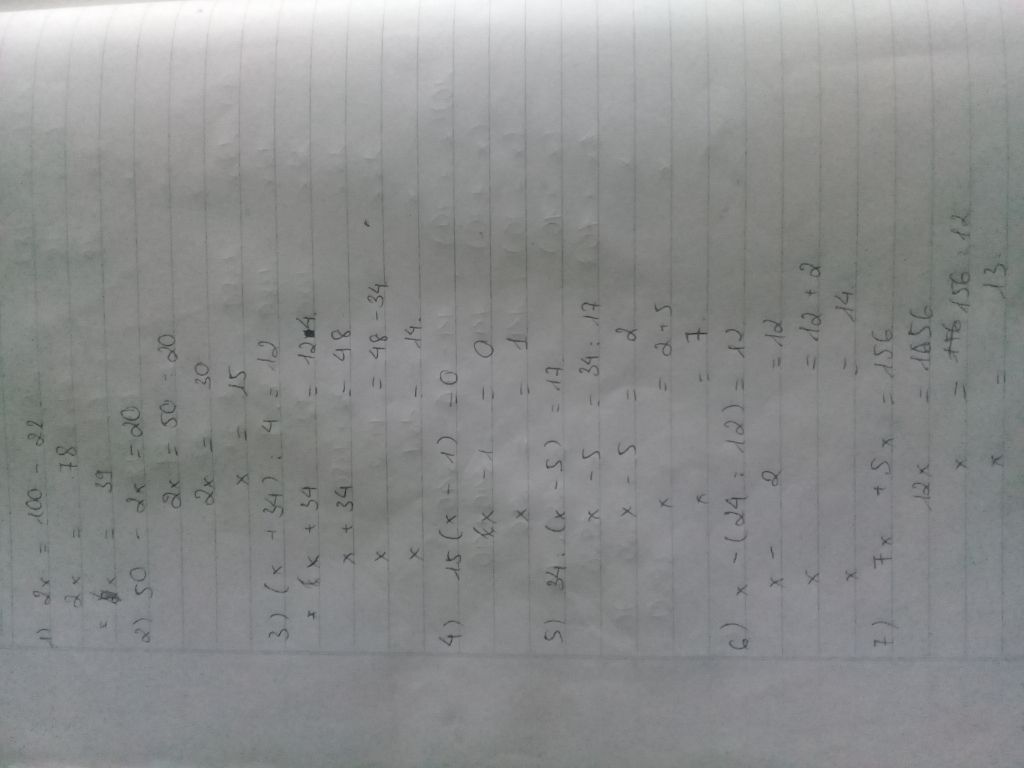 1) 2x = 100 - 22
2x = 78
x = 39
2) 50 - 2x = 20
2x = 50 - 20
2x = 30
x = 15
3) (x + 34) : 4 = 12
x + 34 = 12 . 4
x + 34 = 48
x = 48 - 34
x = 14
4) 15 (x - 1) = 0
x - 1 = 0
x = 1
5) 34 : (x - 5) = 17
x - 5 = 34 : 17
x - 5 = 2
x = 2 + 5
x = 7
6) x - (24 : 12) = 12
x - 2 = 12
x = 12 + 2
x = 14
7) 7x + 5x = 156
12x = 156
x = 156 : 12
x = 13